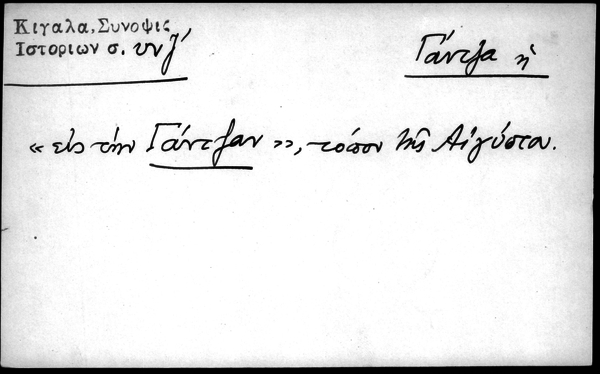 Κιγαλα, Συνοψις
Ιστοριων σ. υνζ'
Γάντζα ἡ
« εἰς τὴν Γάντζαν », τόπον τῆς Αἰγύπτου.